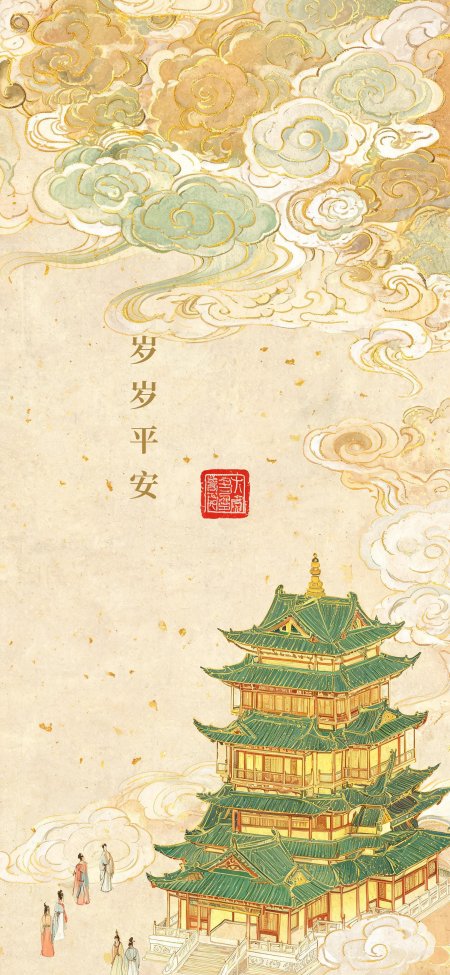 岁岁平安